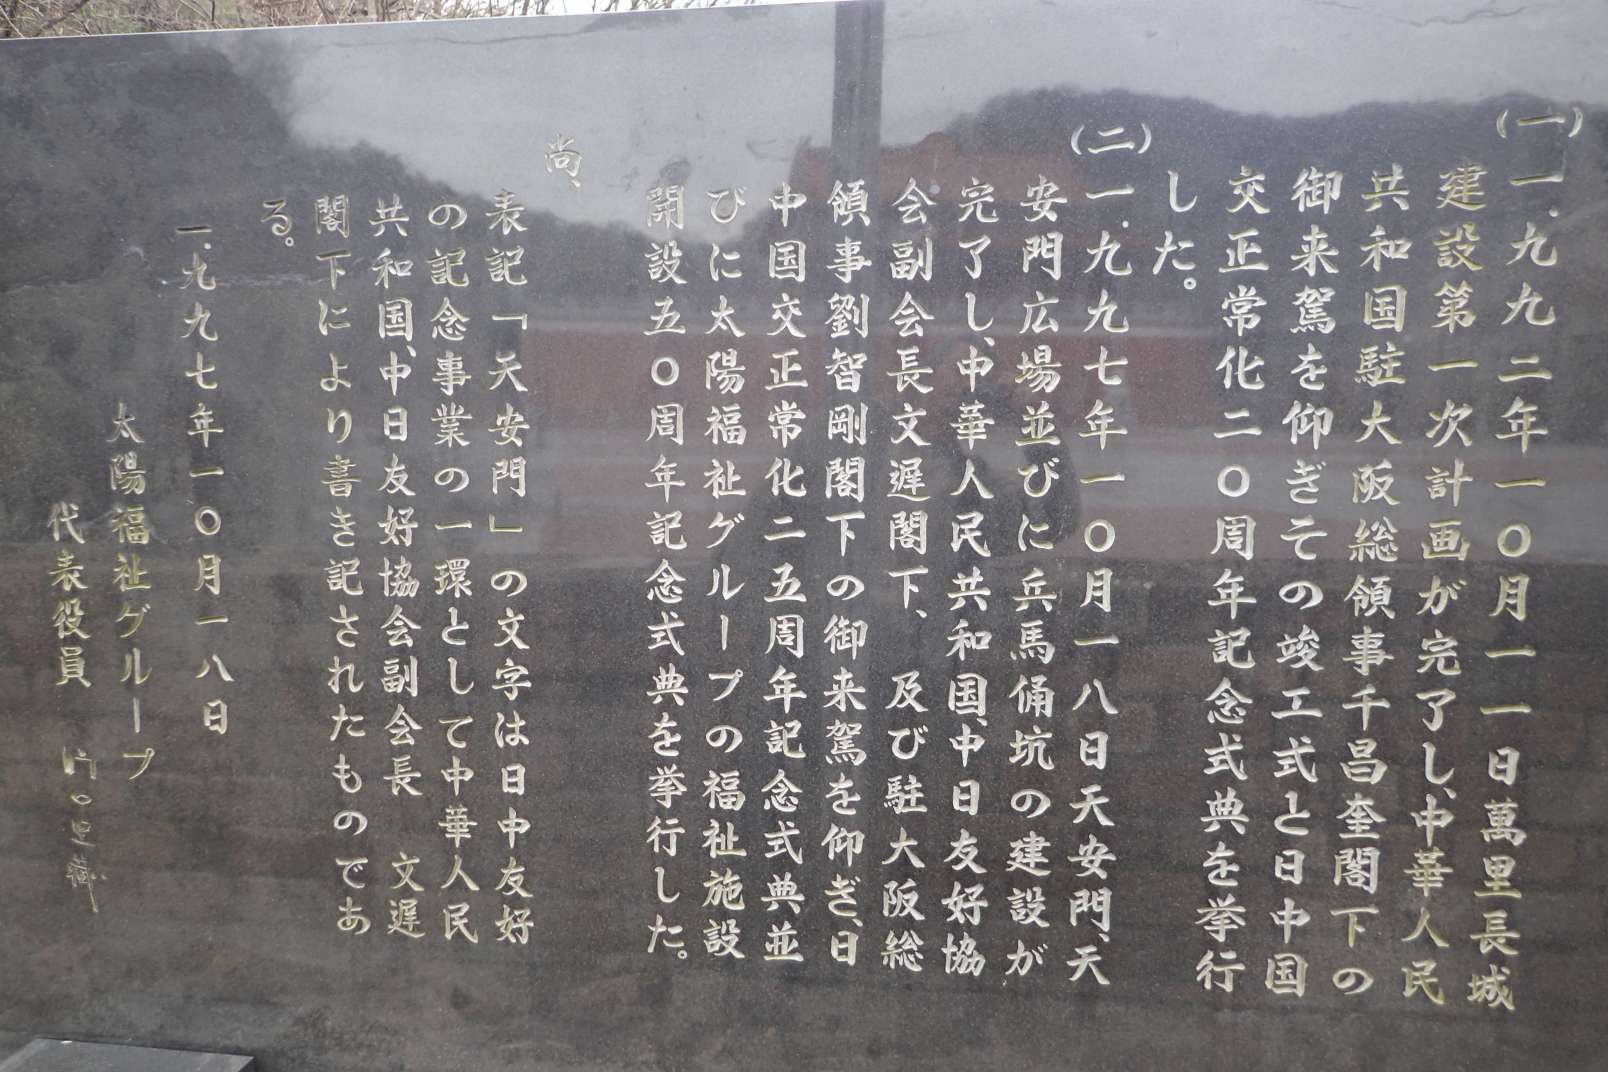 (一)一.九九二年一〇月一一日萬里長城
建設第一次計画が完了し、中華人民
共和国駐大阪総領事千昌奎閣下の
御来駕を仰ぎその竣工式と日中国
交正常化二〇周年記念式典を挙行
した。
(二)一.九九七年一〇月一八日天安門、天
安門広場並びに兵馬俑坑の建設が
完了し、中華人民共和国、中日友好協
会副会長文遅閣下、及び駐大阪総
領事劉智剛閣下の御来駕を仰ぎ、日
中国交正常化二五周年記念式典、並
びに太陽福祉グループの福祉施設
開設五〇周年記念式典を挙行した。
尚、
表記「天安門」の文字は日中友好
の記念事業の一環として中華人民
共和国、中日友好協会副会長 文遅
閣下により書き記されたものであ
る。
一.九九七年一〇月一八日
太陽福祉グループ
代表役員